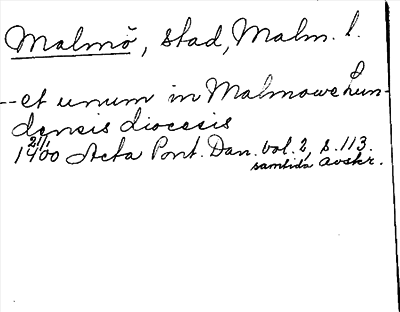 Malmö, stad, Malm. l.
-- et unum in Malmowe Lun-
densis diocesis
21/1
1400 Acta Pont. Dan. vol. 2, s. 113.
samtida avskr.